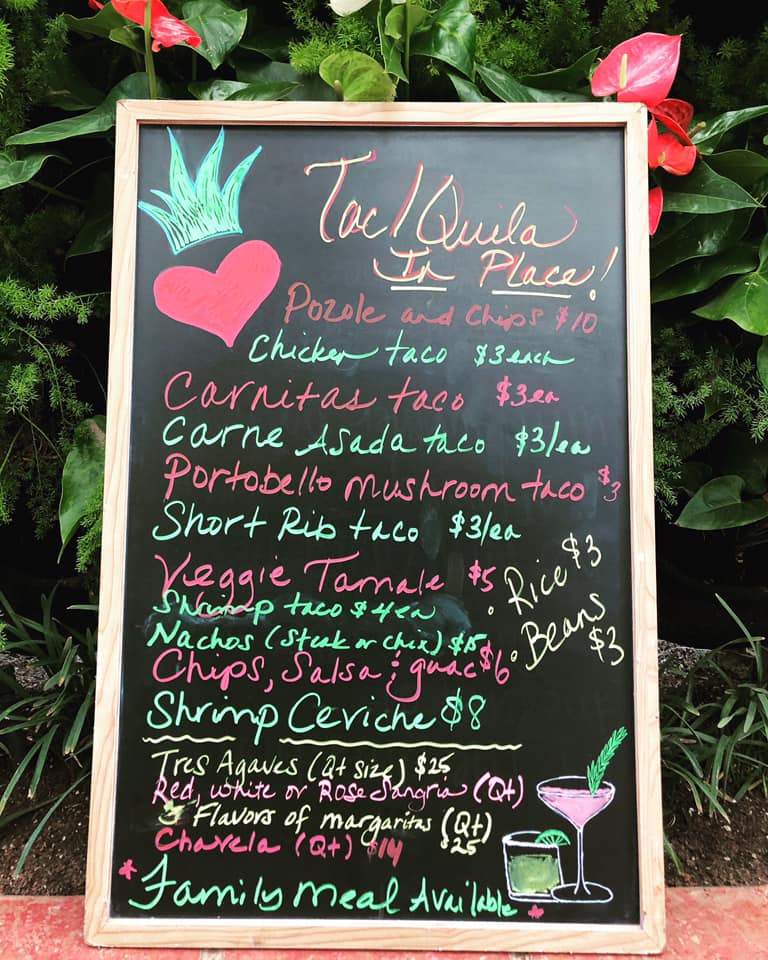 Tac/Quila
In Place!
Pozole and Chips $10
Chicken taco $3 each
Carnitas taco $3 ea
Carne Asada taco $3/ea
Portobello mushroom taco $3
Short Rib taco $3/ea
Veggie Tamale $5
Shrimp taco $4 ea
• Rice $3
Nachos (Steak or chix) $15
• Beans $3
Chips, Salsa & guac $6
Shrimp Ceviche $8
Tres Agaves (Qt size) $25
Red, white or Rose Sangria (Qt)
3 Flavors of margaritas (Qt) $25
Chavela (Qt) $14
* Family Meal Available *